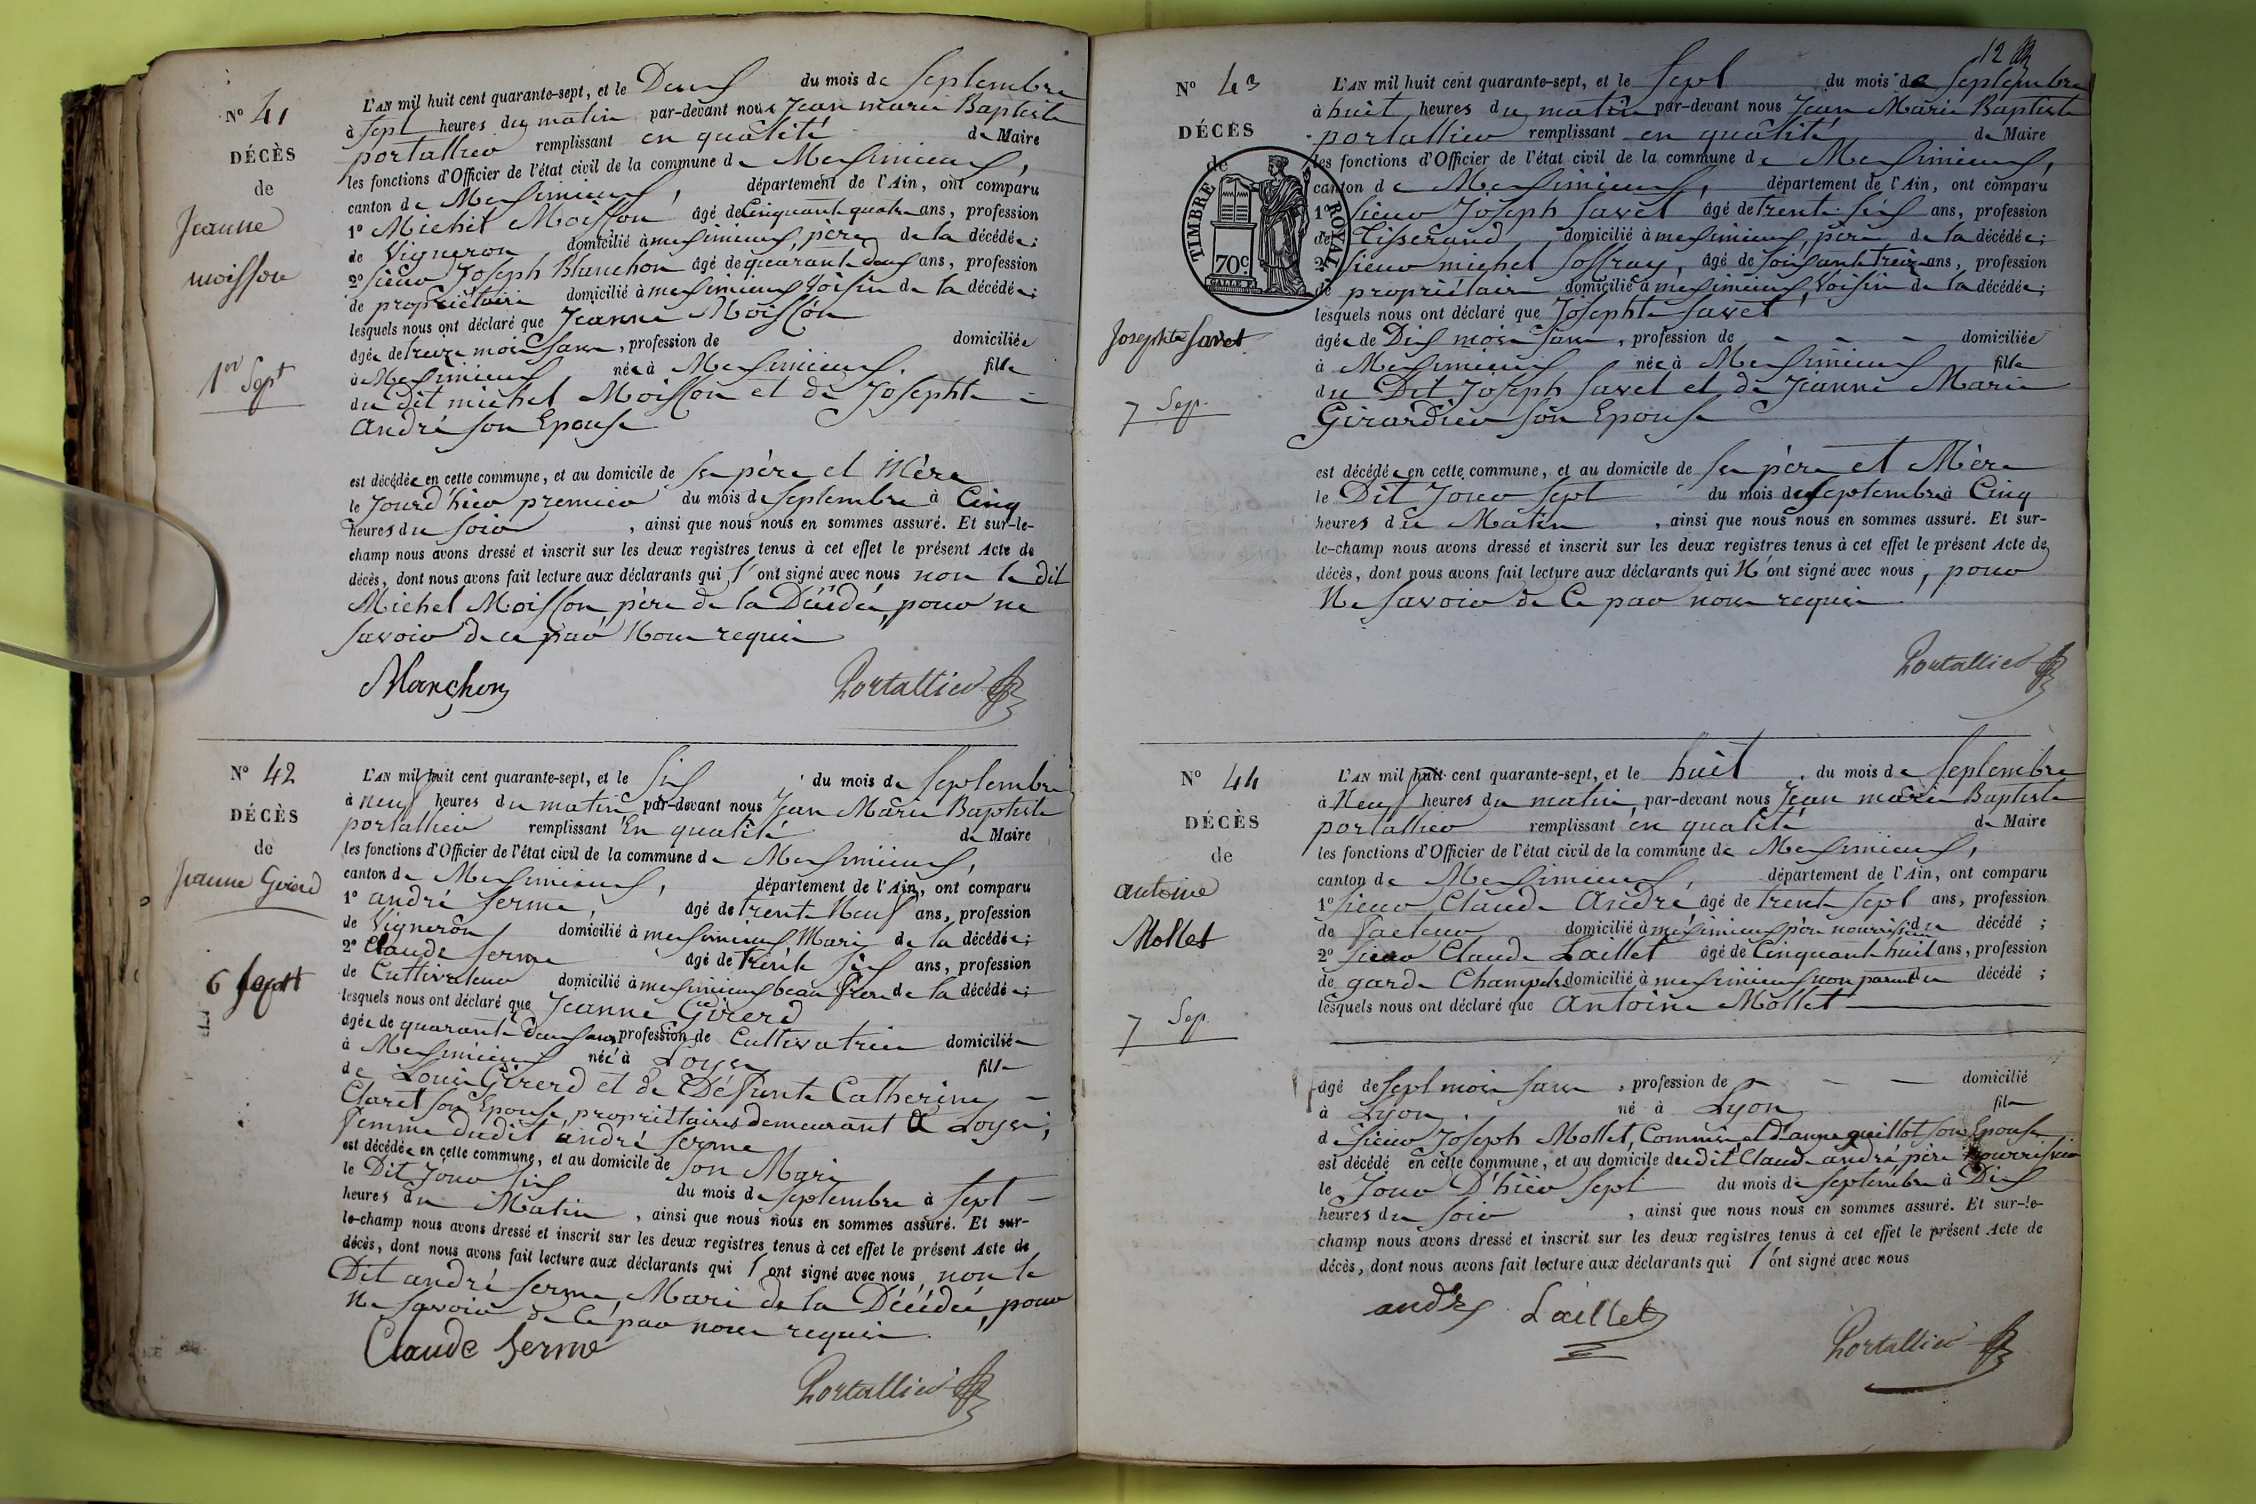 N° 41
DÉCÈS
de
Jeanne
moisson
1er Sept
L'AN mil huit cent quarante-sept, et le Deux du mois de Septembre
à Sept heures du matin par-devant nous Jean marie Baptiste
portallier remplissant en qualité de Maire
les fonctions d'Officier de l'état civil de la commune de Meximieux,
canton de Meximieux, département de l'Ain, ont comparu
1° Michel Moisson âgé de Cinquante quatre ans, profession
de Vigneron domicilié à meximieux, père de la décédée;
2° sieur Joseph Blanchon âgé de quarante deux ans, profession
de propriétaire domicilié à meximieux Voisin de la décédée;
lesquels nous ont déclaré que Jeanne Moisson
âgée de treize mois sans, profession de domiciliée
à Meximieux née à Meximieux. fille
du dit michel Moisson et de Josephte -
andré son Epouse
est décédée en cette commune, et au domicile de ses père et Mère
le Jourd'hier premier du mois de Septembre à Cinq
heures du soir, ainsi que nous nous en sommes assuré. Et sur-le-
champ nous avons dressé et inscrit sur les deux registres tenus à cet effet le présent Acte de
décès, dont nous avons fait lecture aux déclarants qui l'ont signé avec nous non le dit
Michel Moisson père de la Décédée, pour ne
savoir de ce par Nous requis
Blanchon Portallier
N° 42
DÉCÈS
de
Jeanne Girerd
6 Sept
L'AN mil huit cent quarante-sept, et le six du mois de Septembre
à neuf heures du matin, par-devant nous Jean Marie Baptiste
portallier remplissant En qualité de Maire
les fonctions d'Officier de l'état civil de la commune de Meximieux,
canton de Meximieux, département de l'Ain, ont comparu
1° andré Serme, âgé de trente Neuf ans, profession
de Vigneron domicilié à meximieux Mari de la décédée;
2° Claude Serme âgé de trente six ans, profession
de Cultivateur domicilié à meximieux beau frère de la décédée;
lesquels nous ont déclaré que Jeanne Girerd
âgée de quarante deux ans, profession de Cultivatrice domiciliée
à Meximieux née à Loyes fille
de Louis Girerd et de Défunte Catherine -
Claret son Epouse, propriétaires demeurant à Loyes,
femme dudit andré Serme
est décédée en cette commune, et au domicile de son Mari
le Dit Jour six du mois de Septembre à sept -
heures du Matin, ainsi que nous nous en sommes assuré. Et sur-
le-champ nous avons dressé et inscrit sur les deux registres tenus à cet effet le présent Acte de
décès, dont nous avons fait lecture aux déclarants qui l'ont signé avec nous, non le
Dit andré Serme Mari de la Décédée, pour
Ne savoir de Ce par nous requis
Claude Serme
Portallier
12
N° 43
DÉCÈS
de
TIMBRE ROYAL
70c
Josephte Savet
7 Sep.
L'AN mil huit cent quarante-sept, et le Sept du mois de Septembre
à huit heures du matin par-devant nous Jean Marie Baptiste
portallier remplissant en qualité de Maire
les fonctions d'Officier de l'état civil de la commune de Meximieux,
canton de Meximieux, département de l'Ain, ont comparu
1° sieur Joseph Savet âgé de trente six ans, profession
de Tisserand domicilié à meximieux, père de la décédée;
2° sieur michel Joffray, âgé de soixante treize ans, profession
de propriétaire domicilié à meximieux, Voisin de la décédée;
lesquels nous ont déclaré que Josephte Savet
âgée de Dix mois sans, profession de - - - domiciliée
à Meximieux née à Meximieux fille
du Dit Joseph Savet et de Jeanne Marie
Girardier son Epouse
est décédée en cette commune, et au domicile de ses père et Mère
le Dit Jour sept du mois de Septembre à Cinq
heures du Matin, ainsi que nous nous en sommes assuré. Et sur-
le-champ nous avons dressé et inscrit sur les deux registres tenus à cet effet le présent Acte de
décès, dont nous avons fait lecture aux déclarants qui N'ont signé avec nous, pour
Ne savoir de Ce par nous requis
Portallier
N° 44
DÉCÈS
de
antoine
Mollet
7 Sep.
L'AN mil huit cent quarante-sept, et le huit du mois de Septembre
à Neuf heures du matin, par-devant nous Jean marie Baptiste
portallier remplissant en qualité de Maire
les fonctions d'Officier de l'état civil de la commune de Meximieux,
canton de Meximieux, département de l'Ain, ont comparu
1° sieur Claude André âgé de trente sept ans, profession
de facteur domicilié à meximieux père nourricier du décédé;
2° sieur Claude Laillet âgé de Cinquante huit ans, profession
de garde Champetre domicilié à meximieux non parent du décédé;
lesquels nous ont déclaré que Antoine Mollet
âgé de sept mois sans, profession de - - - domicilié
à Lyon né à Lyon fils
de sieur Joseph Mollet, Commis, et D'anne guillot son Epouse
est décédé en cette commune, et au domicile dudit Claude andré père Nourricier
le Jour D'hier sept du mois de Septembre à Dix
heures du soir, ainsi que nous nous en sommes assuré. Et sur-le-
champ nous avons dressé et inscrit sur les deux registres tenus à cet effet le présent Acte de
décès, dont nous avons fait lecture aux déclarants qui l'ont signé avec nous
andré Laillet
Portallier